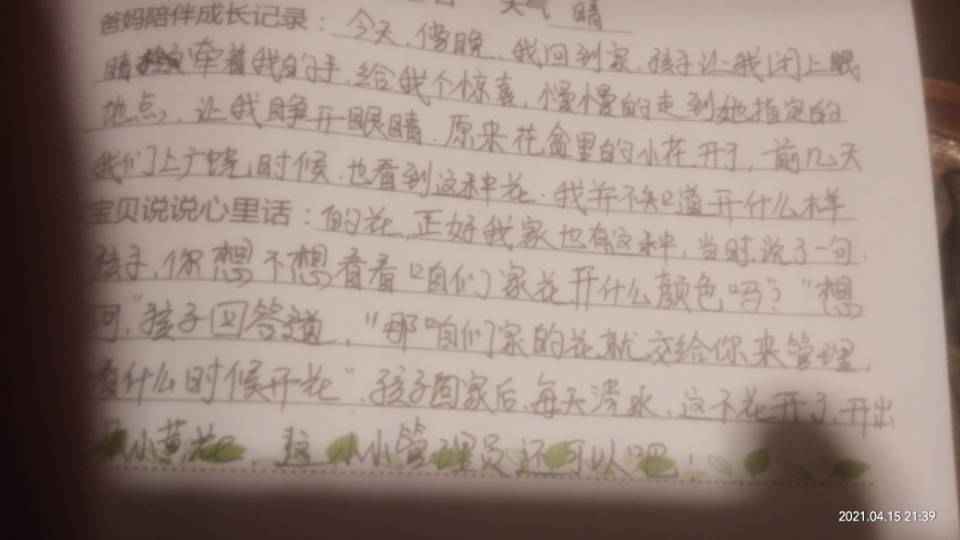 天气 晴
爸妈陪伴成长记录：今天，傍晚，我回到家，孩子让我闭上眼
睛牵着我的手，给我个惊喜，慢慢的走到她指定的
地点，让我睁开眼睛，原来在盆里的小花开了，前几天
我们上广饶，时候，也看到这种花，我并不知道开什么样
宝贝说说心里话：的花，正好我家也有这种，当时，说了一句，
孩子，你想不想看看咱们家花开什么颜色吗？"想
呵，"孩子回答道，"那咱们家的花就交给你来管理，
看什么时候开花"，孩子回家后，每天浇水，这不花开了，开出
小黄花，这小小管理员还可以吧！
2021.04.15 21:39